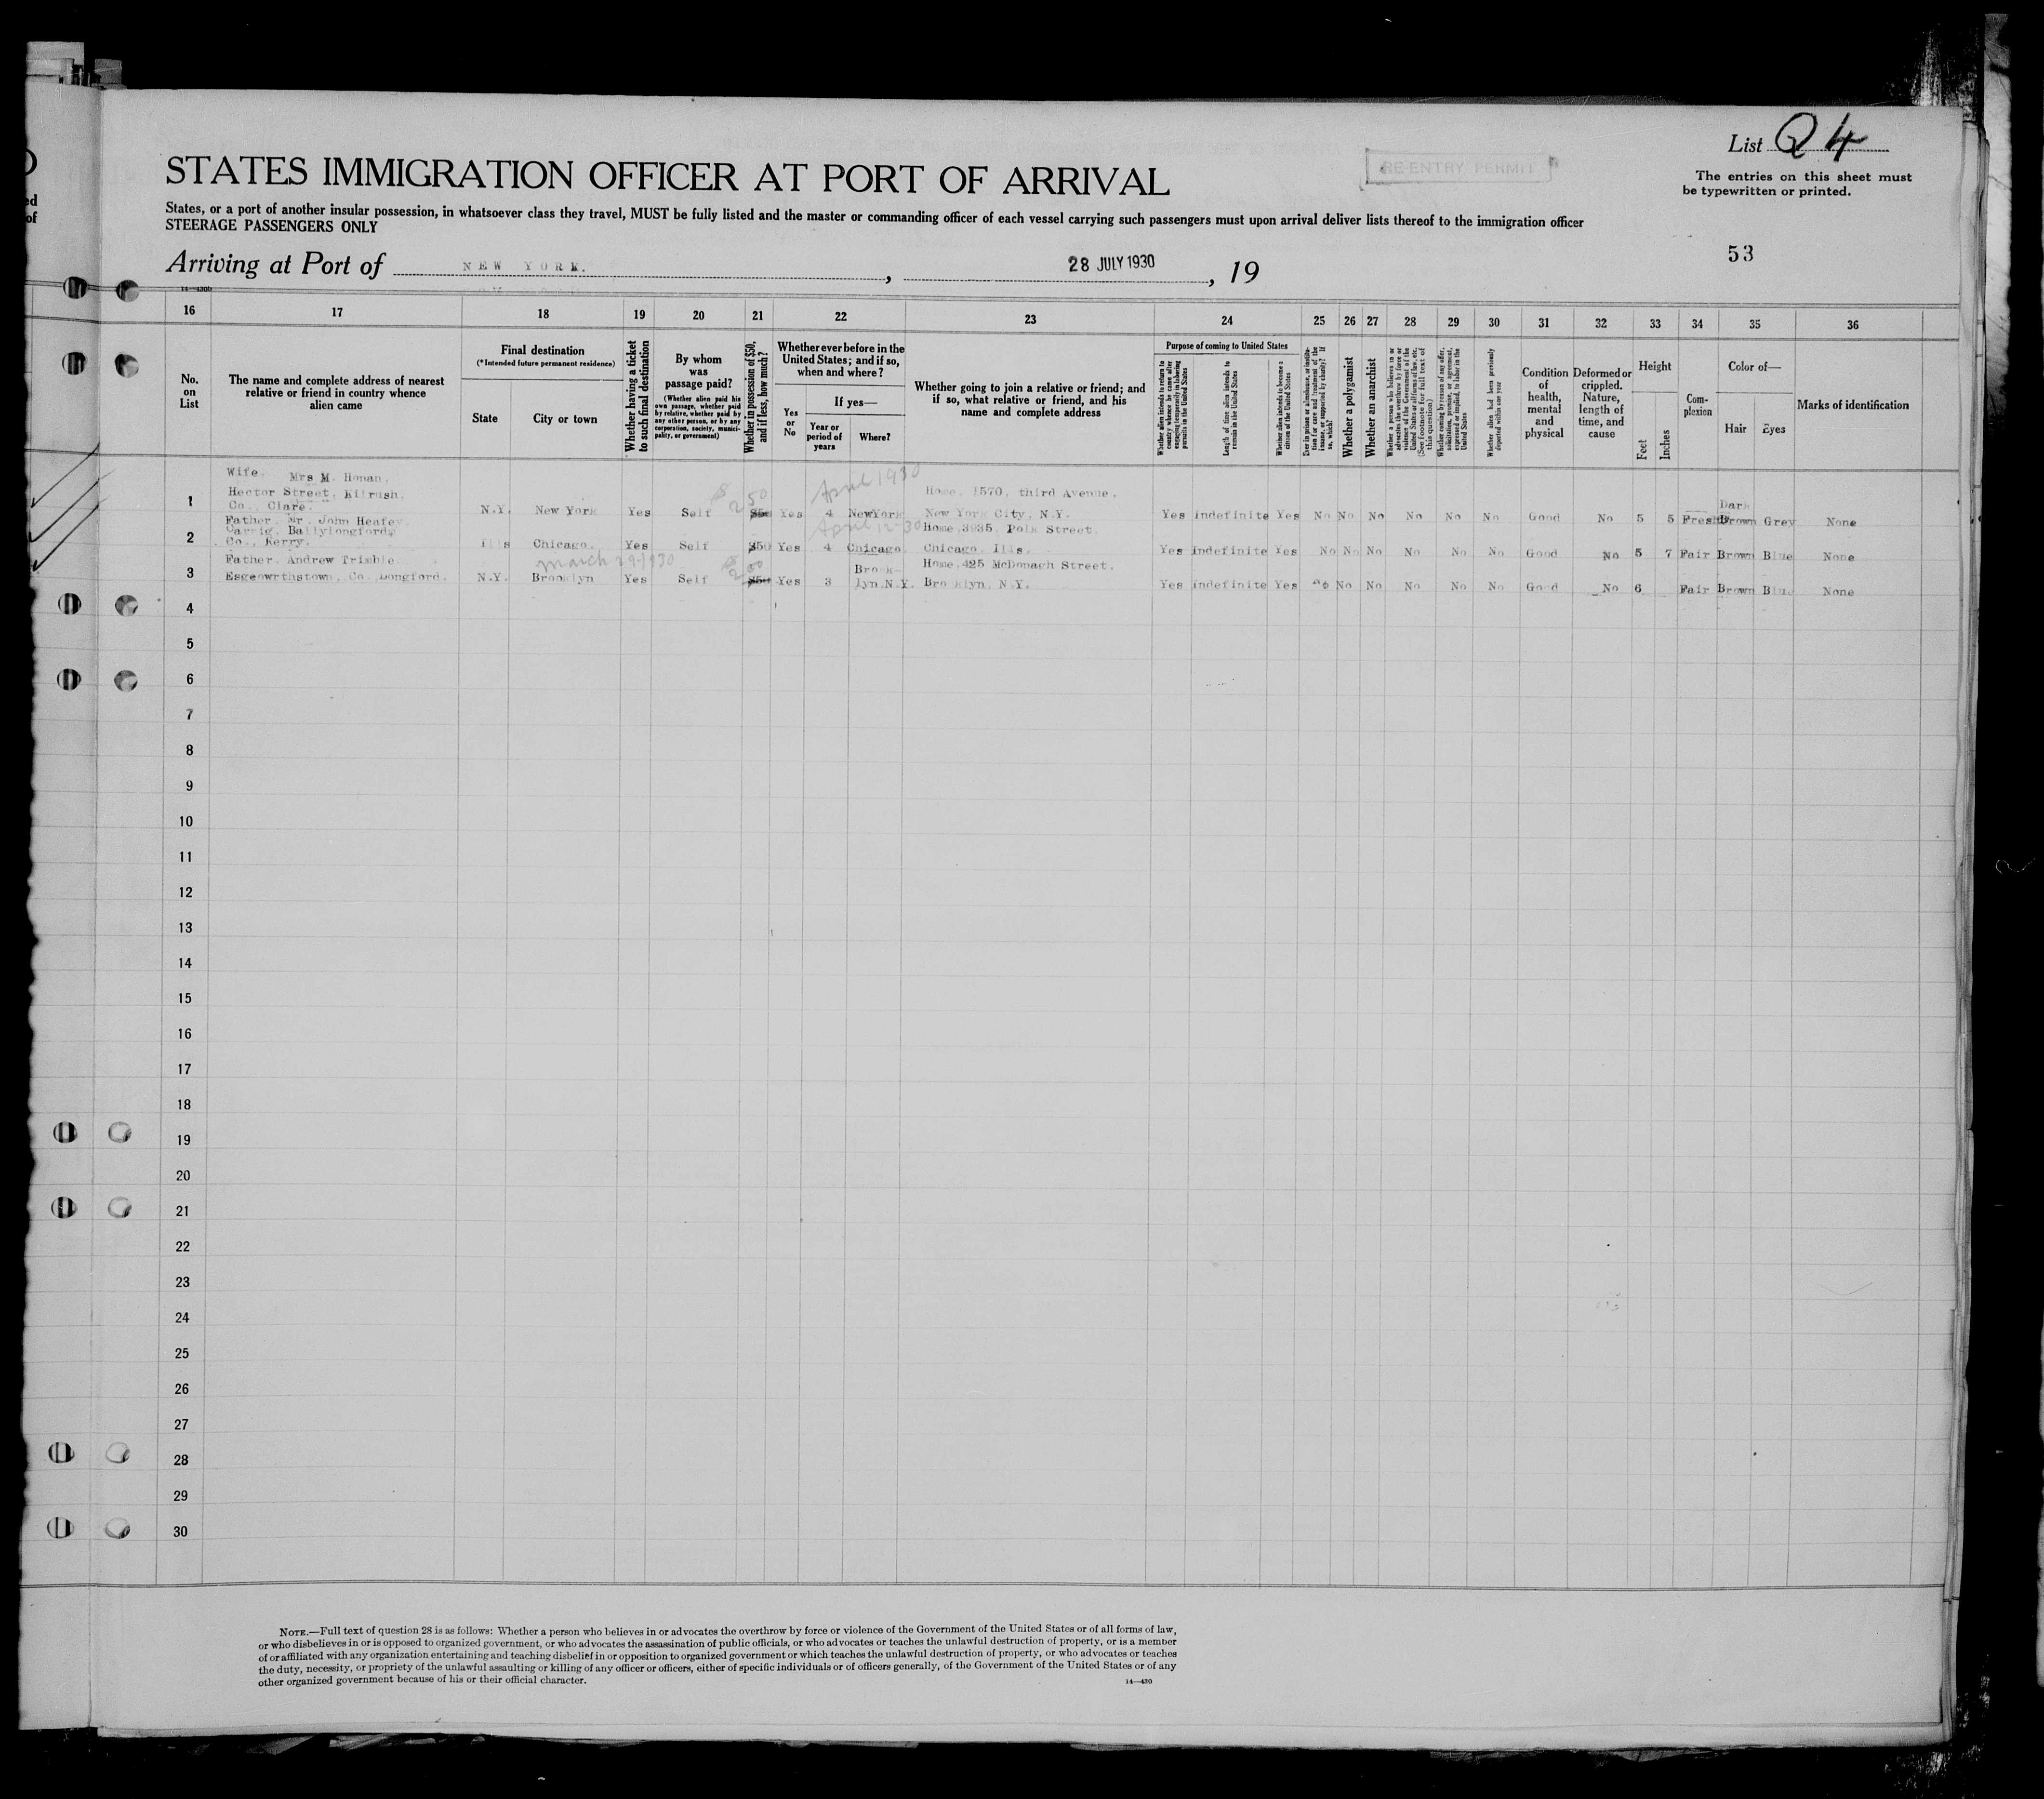 List Q4
The entries on this sheet must
be typewritten or printed.
RE-ENTRY PERMIT
STATES IMMIGRATION OFFICER AT PORT OF ARRIVAL
States, or a port of another insular possession, in whatsoever class they travel, MUST be fully listed and the master or commanding officer of each vessel carrying such passengers must upon arrival deliver lists thereof to the immigration officer
STEERAGE PASSENGERS ONLY
53
Arriving at Port of NEW YORK. , 28 JULY 1930 , 19
16 17 18 19 20 21 22 23 24 25 26 27 28 29 30 31 32 33 34 35 36
No. on List
The name and complete address of nearest relative or friend in country whence alien came
Final destination
(*Intended future permanent residence)
State
City or town
Whether having a ticket to such final destination
By whom was passage paid?
(Whether alien paid his own passage, whether paid by relative, whether paid by any other person, or by any corporation, society, municipality, or government)
Whether in possession of $50, and if less, how much?
Whether ever before in the United States; and if so, when and where?
Yes or No
If yes—
Year or period of years
Where?
Whether going to join a relative or friend; and if so, what relative or friend, and his name and complete address
Purpose of coming to United States
Whether alien intends to return to country whence he came after engaging temporarily in laboring pursuits in the United States
Length of time alien intends to remain in the United States
Whether alien intends to become a citizen of the United States
Ever in prison or almshouse, or institution for care and treatment of the insane, or supported by charity? If so, which?
Whether a polygamist
Whether an anarchist
Whether a person who believes in or advocates the overthrow by force or violence of the Government of the United States or all forms of law, etc. (See footnote for full text of this question)
Whether coming by reason of any offer, solicitation, promise, or agreement, expressed or implied, to labor in the United States
Whether alien had been previously deported within one year
Condition of health, mental and physical
Deformed or crippled. Nature, length of time, and cause
Height
Feet
Inches
Complexion
Color of—
Hair
Eyes
Marks of identification
Wife. Mrs M. Honan.
Hector Street, Kilrush.
1 Co. Clare. N.Y. New York Yes Self $250 Yes 4 April 1930 NewYork Home. 1570, third Avenue. New York City, N.Y. Yes Indefinite Yes No No No No No No Good No 5 5 Fresh Dark Brown Grey None
Father. Mr. John Heafey
Carrig, Ballylongford,
2 Co., Kerry. Ills Chicago. Yes Self $50 Yes 4 April 12-30 Chicago. Home. 3935, Polk Street. Chicago. Ills. Yes Indefinite Yes No No No No No No Good No 5 7 Fair Brown Blue None
Father. Andrew Trimble
3 Esgeowrthstown, Co. Longford. N.Y. Brooklyn March 29-1930 Yes Self $200 Yes 3 Brook-lyn.N.Y. Home.425 McDonagh Street. Brooklyn. N.Y. Yes Indefinite Yes No No No No No No Good No 6 Fair Brown Blue None
4
5
6
7
8
9
10
11
12
13
14
15
16
17
18
19
20
21
22
23
24
25
26
27
28
29
30
NOTE.—Full text of question 28 is as follows: Whether a person who believes in or advocates the overthrow by force or violence of the Government of the United States or of all forms of law,
or who disbelieves in or is opposed to organized government, or who advocates the assassination of public officials, or who advocates or teaches the unlawful destruction of property, or is a member
of or affiliated with any organization entertaining and teaching disbelief in or opposition to organized government or which teaches the unlawful destruction of property, or who advocates or teaches
the duty, necessity, or propriety of the unlawful assaulting or killing of any officer or officers, either of specific individuals or of officers generally, of the Government of the United States or of any
other organized government because of his or their official character.
14—430